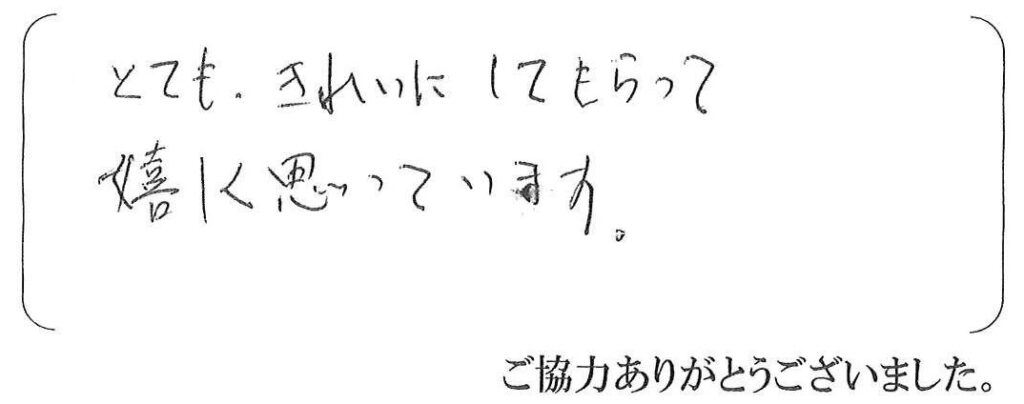 とても、きれいにしてもらって
嬉しく思っています。
ご協力ありがとうございました。